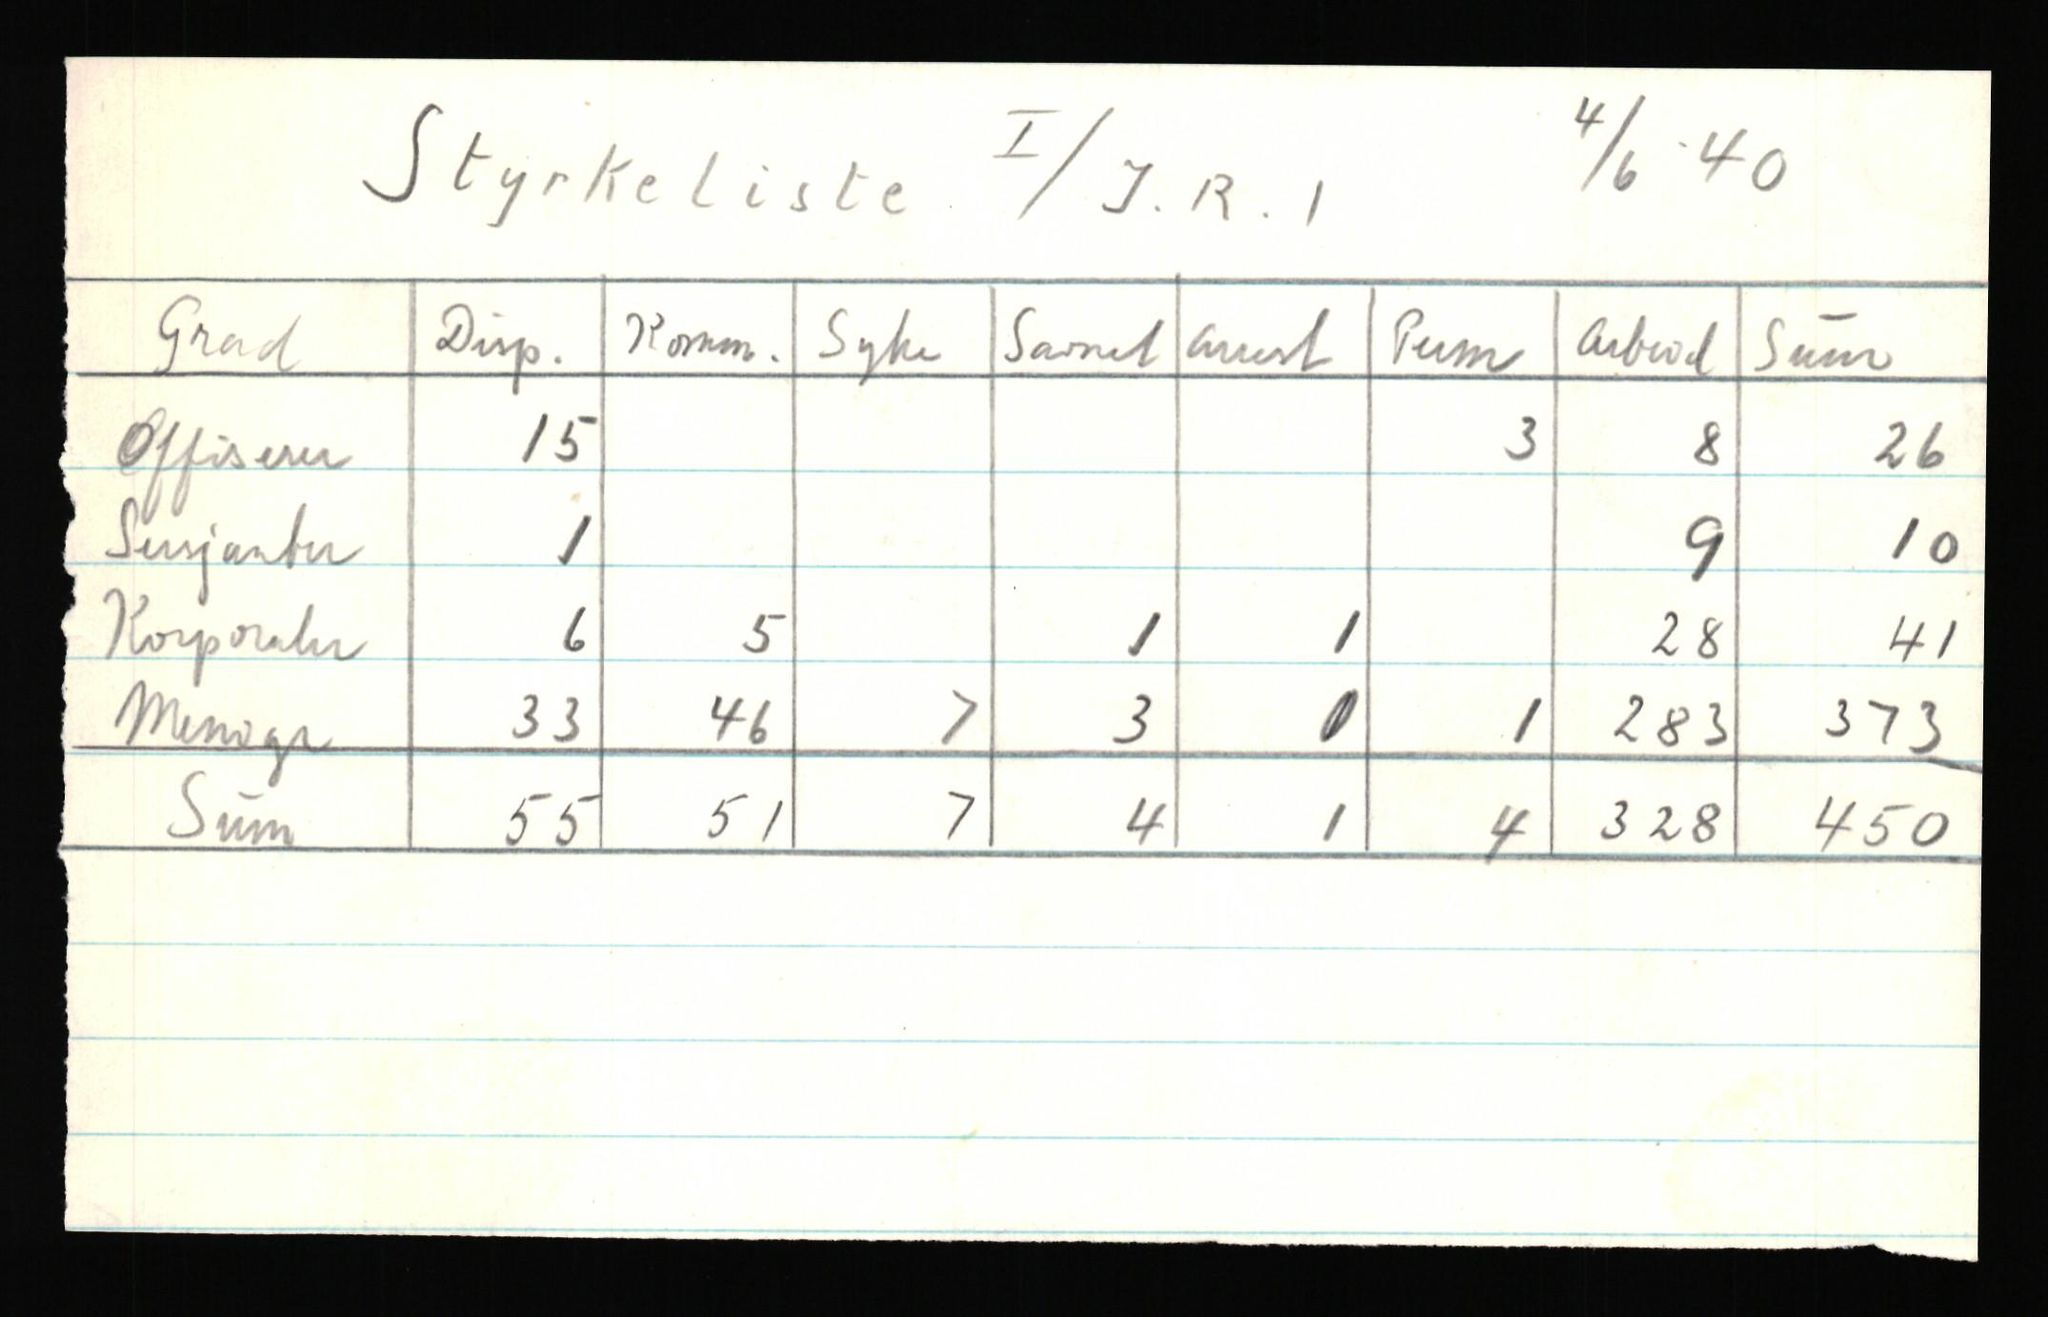 Styrkeliste I/J.R.1 4/6-40
Grad Disp. Komm. Syke Savnet Arrest Perm Arbeid Sum
Offiserer 15 3 8 26
Sersjanter 1 9 10
Korporaler 6 5 1 1 28 41
Menige 33 46 7 3 0 1 283 373
Sum 55 51 7 4 1 4 328 450